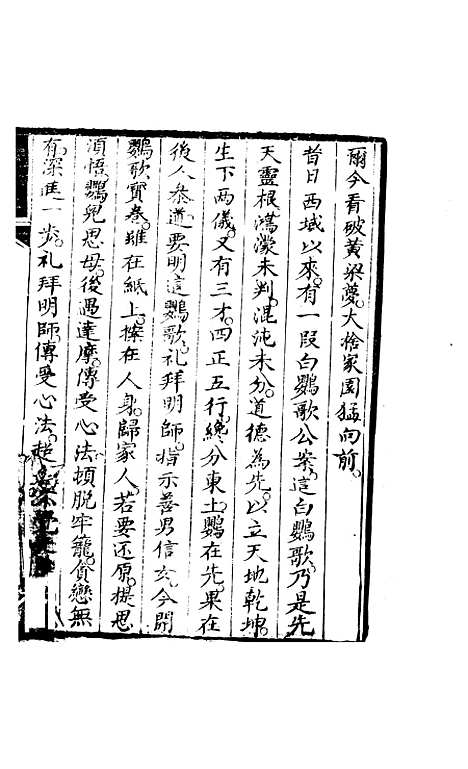 爾今看破黃梁夢。大捨家園猛向前。
昔日西域以來。有一段白鸚歌公案。這白鸚歌乃是先
天靈根。鴻濛未判。混沌未分。道德為先。以立天地乾坤。
生下两儀。又有三才。四正五行。纔分東土。鸚在先。果在
後人。參道要明這鸚歌。礼拜明師。指示善男信 今開
鸚歌寶卷。雖在紙上。採在人身。歸家人。若要还原。提思
須悟。鸚兒思母。後遇達摩。傳受心法。頓脱牢籠。貪戀無
有。深進一步。礼拜明師。傳受心法。超